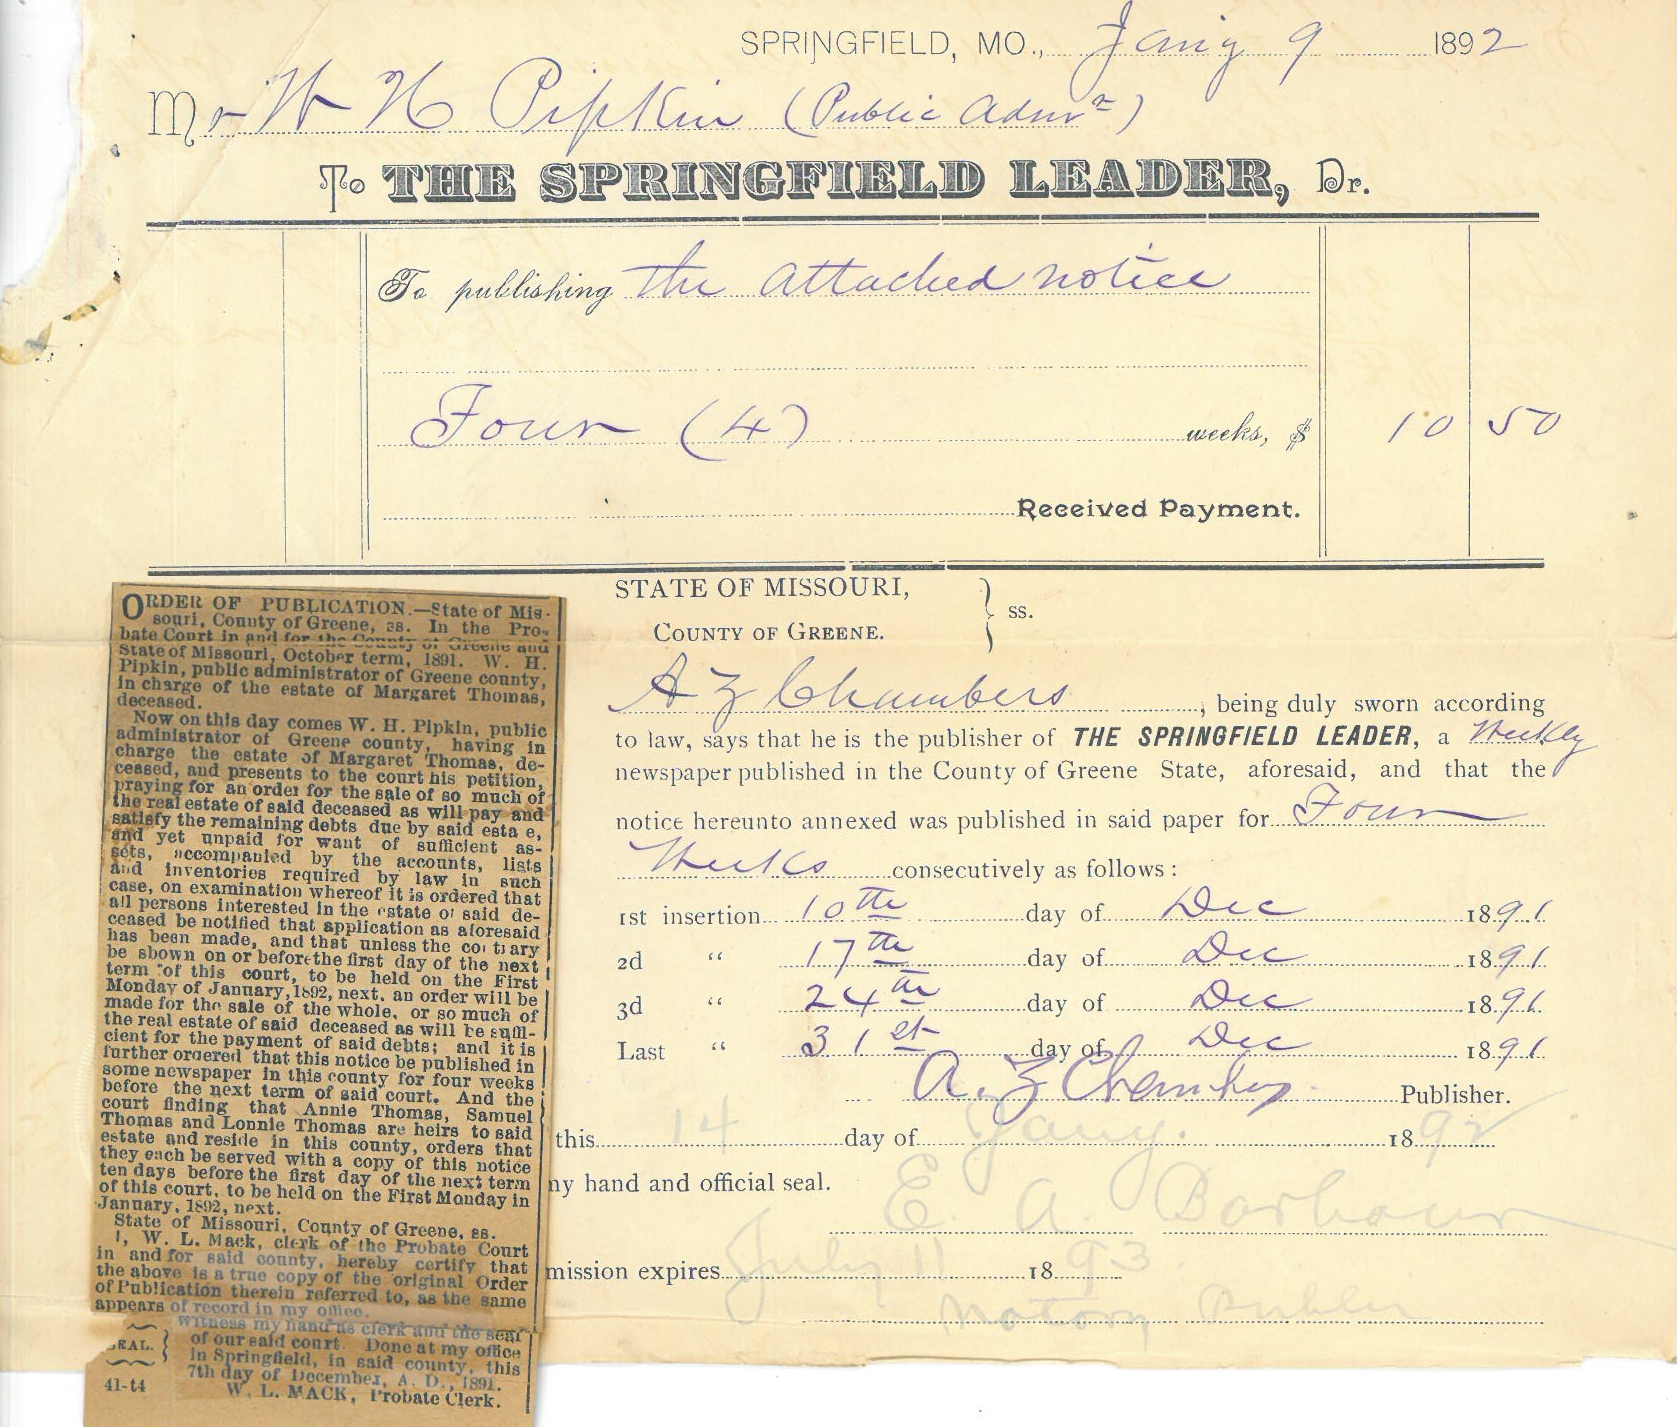 SPRINGFIELD, MO., Jany 9 1892
Mr W H Pipkin (Public Admr)
To THE SPRINGFIELD LEADER, Dr.
To publishing the attached notice
Four (4) weeks, $ 10 50
Received Payment.
STATE OF MISSOURI,
COUNTY OF GREENE. } ss.
A Z Chambers, being duly sworn according
to law, says that he is the publisher of THE SPRINGFIELD LEADER, a Weekly
newspaper published in the County of Greene State, aforesaid, and that the
notice hereunto annexed was published in said paper for Four
Weeks consecutively as follows:
1st insertion 10th day of Dec 1891.
2d " 17th day of Dec 1891.
3d " 24th day of Dec 1891.
Last " 31st day of Dec 1891.
A. Z Chambers Publisher.
this 14 day of Jany. 1892
my hand and official seal.
E A Barbour
mission expires July 11 1893.
Notary Public
ORDER OF PUBLICATION.—State of Mis-
souri, County of Greene, ss. In the Pro-
bate Court in and for the County of Greene and
State of Missouri, October term, 1891. W. H.
Pipkin, public administrator of Greene county,
in charge of the estate of Margaret Thomas,
deceased.
Now on this day comes W. H. Pipkin, public
administrator of Greene county, having in
charge the estate of Margaret Thomas, de-
ceased, and presents to the court his petition,
praying for an order for the sale of so much of
the real estate of said deceased as will pay and
satisfy the remaining debts due by said esta e,
and yet unpaid for want of sufficient as-
sets, accompanied by the accounts, lists
and inventories required by law in such
case, on examination whereof it is ordered that
all persons interested in the estate of said de-
ceased be notified that application as aforesaid
has been made, and that unless the contrary
be shown on or before the first day of the next
term of this court, to be held on the First
Monday of January, 1892, next. an order will be
made for the sale of the whole, or so much of
the real estate of said deceased as will be suffi-
cient for the payment of said debts; and it is
further ordered that this notice be published in
some newspaper in this county for four weeks
before the next term of said court. And the
court finding that Annie Thomas, Samuel
Thomas and Lonnie Thomas are heirs to said
estate and reside in this county, orders that
they each be served with a copy of this notice
ten days before the first day of the next term
of this court, to be held on the First Monday in
January, 1892, next.
State of Missouri, County of Greene, ss.
I, W. L. Mack, clerk of the Probate Court
in and for said county, hereby certify that
the above is a true copy of the original Order
of Publication therein referred to, as the same
appears of record in my office.
Witness my hand as clerk and the seal
EAL. } of our said court. Done at my office
in Springfield, in said county, this
7th day of December, A. D., 1891.
41-t4 W. L. MACK, Probate Clerk.